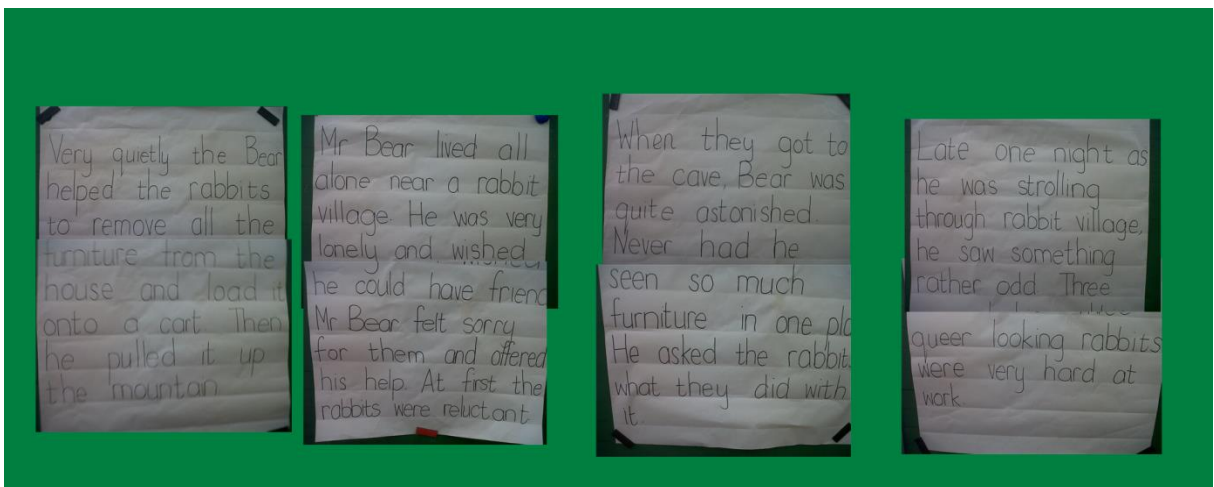 Very quietly the Bear
helped the rabbits
to remove all the
furniture from the
house and load it
onto a cart Then
he pulled it up
the mountain
Mr Bear lived all
alone near a rabbit
village. He was very
lonely and wished
he could have friend
Mr Bear felt sorry
for them and offered
his help. At first the
rabbits were reluctant
When they got to
the cave, Bear was
quite astonished.
Never had he
seen so much
furniture in one pla
He asked the rabbit
what they did with
it
Late one night as
he was strolling
through rabbit village,
he saw something
rather odd. Three
queer looking rabbits
were very hard at
work.